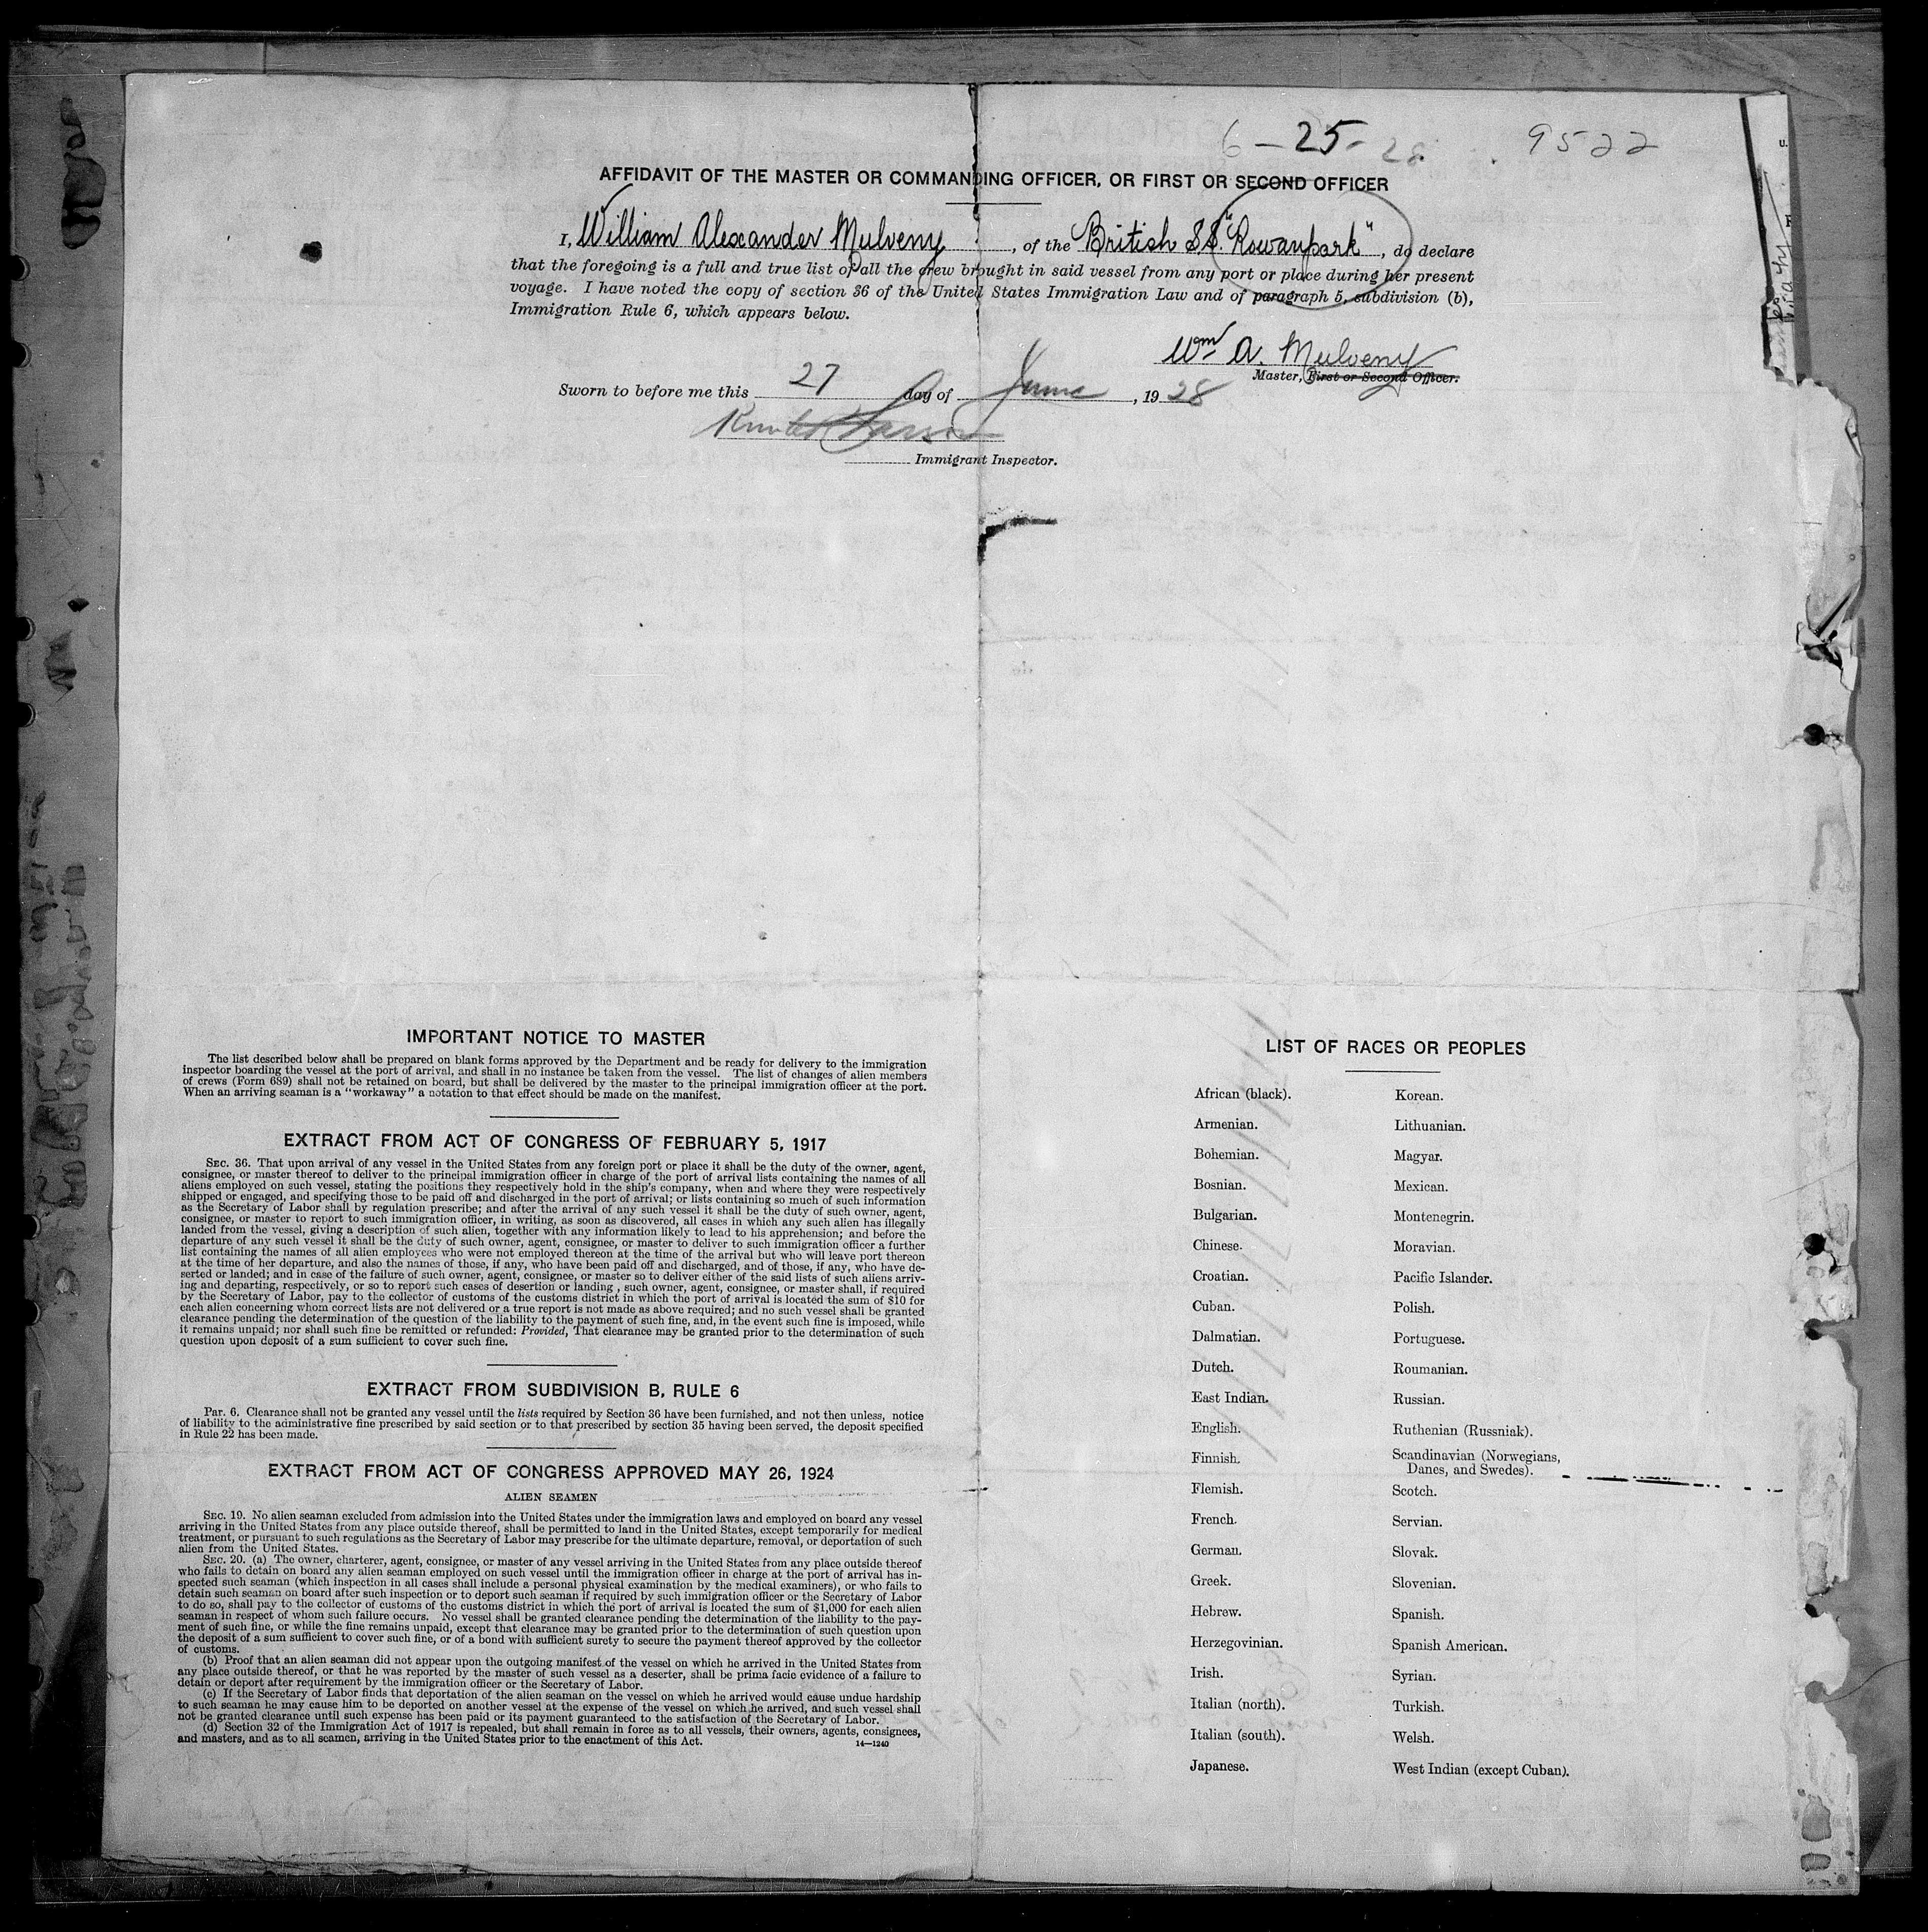 6-25-28 9522
AFFIDAVIT OF THE MASTER OR COMMANDING OFFICER, OR FIRST OR SECOND OFFICER
I, William Alexander Mulveny, of the British S.S. "Rowanpark", do declare
that the foregoing is a full and true list of all the crew brought in said vessel from any port or place during her present
voyage. I have noted the copy of section 36 of the United States Immigration Law and of paragraph 5, subdivision (b),
Immigration Rule 6, which appears below.
Wm A. Mulveny
Master, First or Second Officer.
Sworn to before me this 27 day of June, 1928
Immigrant Inspector.
IMPORTANT NOTICE TO MASTER
The list described below shall be prepared on blank forms approved by the Department and be ready for delivery to the immigration
inspector boarding the vessel at the port of arrival, and shall in no instance be taken from the vessel. The list of changes of alien members
of crews (Form 689) shall not be retained on board, but shall be delivered by the master to the principal immigration officer at the port.
When an arriving seaman is a "workaway" a notation to that effect should be made on the manifest.
EXTRACT FROM ACT OF CONGRESS OF FEBRUARY 5, 1917
SEC. 36. That upon arrival of any vessel in the United States from any foreign port or place it shall be the duty of the owner, agent,
consignee, or master thereof to deliver to the principal immigration officer in charge of the port of arrival lists containing the names of all
aliens employed on such vessel, stating the positions they respectively hold in the ship's company, when and where they were respectively
shipped or engaged, and specifying those to be paid off and discharged in the port of arrival; or lists containing so much of such information
as the Secretary of Labor shall by regulation prescribe; and after the arrival of any such vessel it shall be the duty of such owner, agent,
consignee, or master to report to such immigration officer, in writing, as soon as discovered, all cases in which any such alien has illegally
landed from the vessel, giving a description of such alien, together with any information likely to lead to his apprehension; and before the
departure of any such vessel it shall be the duty of such owner, agent, consignee, or master to deliver to such immigration officer a further
list containing the names of all alien employees who were not employed thereon at the time of the arrival but who will leave port thereon
at the time of her departure, and also the names of those, if any, who have been paid off and discharged, and of those, if any, who have de-
serted or landed; and in case of the failure of such owner, agent, consignee, or master so to deliver either of the said lists of such aliens arriv-
ing and departing, respectively, or so to report such cases of desertion or landing , such owner, agent, consignee, or master shall, if required
by the Secretary of Labor, pay to the collector of customs of the customs district in which the port of arrival is located the sum of $10 for
each alien concerning whom correct lists are not delivered or a true report is not made as above required; and no such vessel shall be granted
clearance pending the determination of the question of the liability to the payment of such fine, and, in the event such fine is imposed, while
it remains unpaid; nor shall such fine be remitted or refunded: Provided, That clearance may be granted prior to the determination of such
question upon deposit of a sum sufficient to cover such fine.
EXTRACT FROM SUBDIVISION B, RULE 6
PAR. 6. Clearance shall not be granted any vessel until the lists required by Section 36 have been furnished, and not then unless, notice
of liability to the administrative fine prescribed by said section or to that prescribed by section 35 having been served, the deposit specified
in Rule 22 has been made.
EXTRACT FROM ACT OF CONGRESS APPROVED MAY 26, 1924
ALIEN SEAMEN
SEC. 19. No alien seaman excluded from admission into the United States under the immigration laws and employed on board any vessel
arriving in the United States from any place outside thereof, shall be permitted to land in the United States, except temporarily for medical
treatment, or pursuant to such regulations as the Secretary of Labor may prescribe for the ultimate departure, removal, or deportation of such
alien from the United States.
SEC. 20. (a) The owner, charterer, agent, consignee, or master of any vessel arriving in the United States from any place outside thereof
who fails to detain on board any alien seaman employed on such vessel until the immigration officer in charge at the port of arrival has in-
spected such seaman (which inspection in all cases shall include a personal physical examination by the medical examiners), or who fails to
detain such seaman on board after such inspection or to deport such seaman if required by such immigration officer or the Secretary of Labor
to do so, shall pay to the collector of customs of the customs district in which the port of arrival is located the sum of $1,000 for each alien
seaman in respect of whom such failure occurs. No vessel shall be granted clearance pending the determination of the liability to the pay-
ment of such fine, or while the fine remains unpaid, except that clearance may be granted prior to the determination of such question upon
the deposit of a sum sufficient to cover such fine, or of a bond with sufficient surety to secure the payment thereof approved by the collector
of customs.
(b) Proof that an alien seaman did not appear upon the outgoing manifest of the vessel on which he arrived in the United States from
any place outside thereof, or that he was reported by the master of such vessel as a deserter, shall be prima facie evidence of a failure to
detain or deport after requirement by the immigration officer or the Secretary of Labor.
(c) If the Secretary of Labor finds that deportation of the alien seaman on the vessel on which he arrived would cause undue hardship
to such seaman he may cause him to be deported on another vessel at the expense of the vessel on which he arrived, and such vessel shall
not be granted clearance until such expense has been paid or its payment guaranteed to the satisfaction of the Secretary of Labor.
(d) Section 32 of the Immigration Act of 1917 is repealed, but shall remain in force as to all vessels, their owners, agents, consignees,
and masters, and as to all seamen, arriving in the United States prior to the enactment of this Act.
14—1240
LIST OF RACES OR PEOPLES
African (black). Korean.
Armenian. Lithuanian.
Bohemian. Magyar.
Bosnian. Mexican.
Bulgarian. Montenegrin.
Chinese. Moravian.
Croatian. Pacific Islander.
Cuban. Polish.
Dalmatian. Portuguese.
Dutch. Roumanian.
East Indian. Russian.
English. Ruthenian (Russniak).
Finnish. Scandinavian (Norwegians,
Danes, and Swedes).
Flemish. Scotch.
French. Servian.
German. Slovak.
Greek. Slovenian.
Hebrew. Spanish.
Herzegovinian. Spanish American.
Irish. Syrian.
Italian (north). Turkish.
Italian (south). Welsh.
Japanese. West Indian (except Cuban).